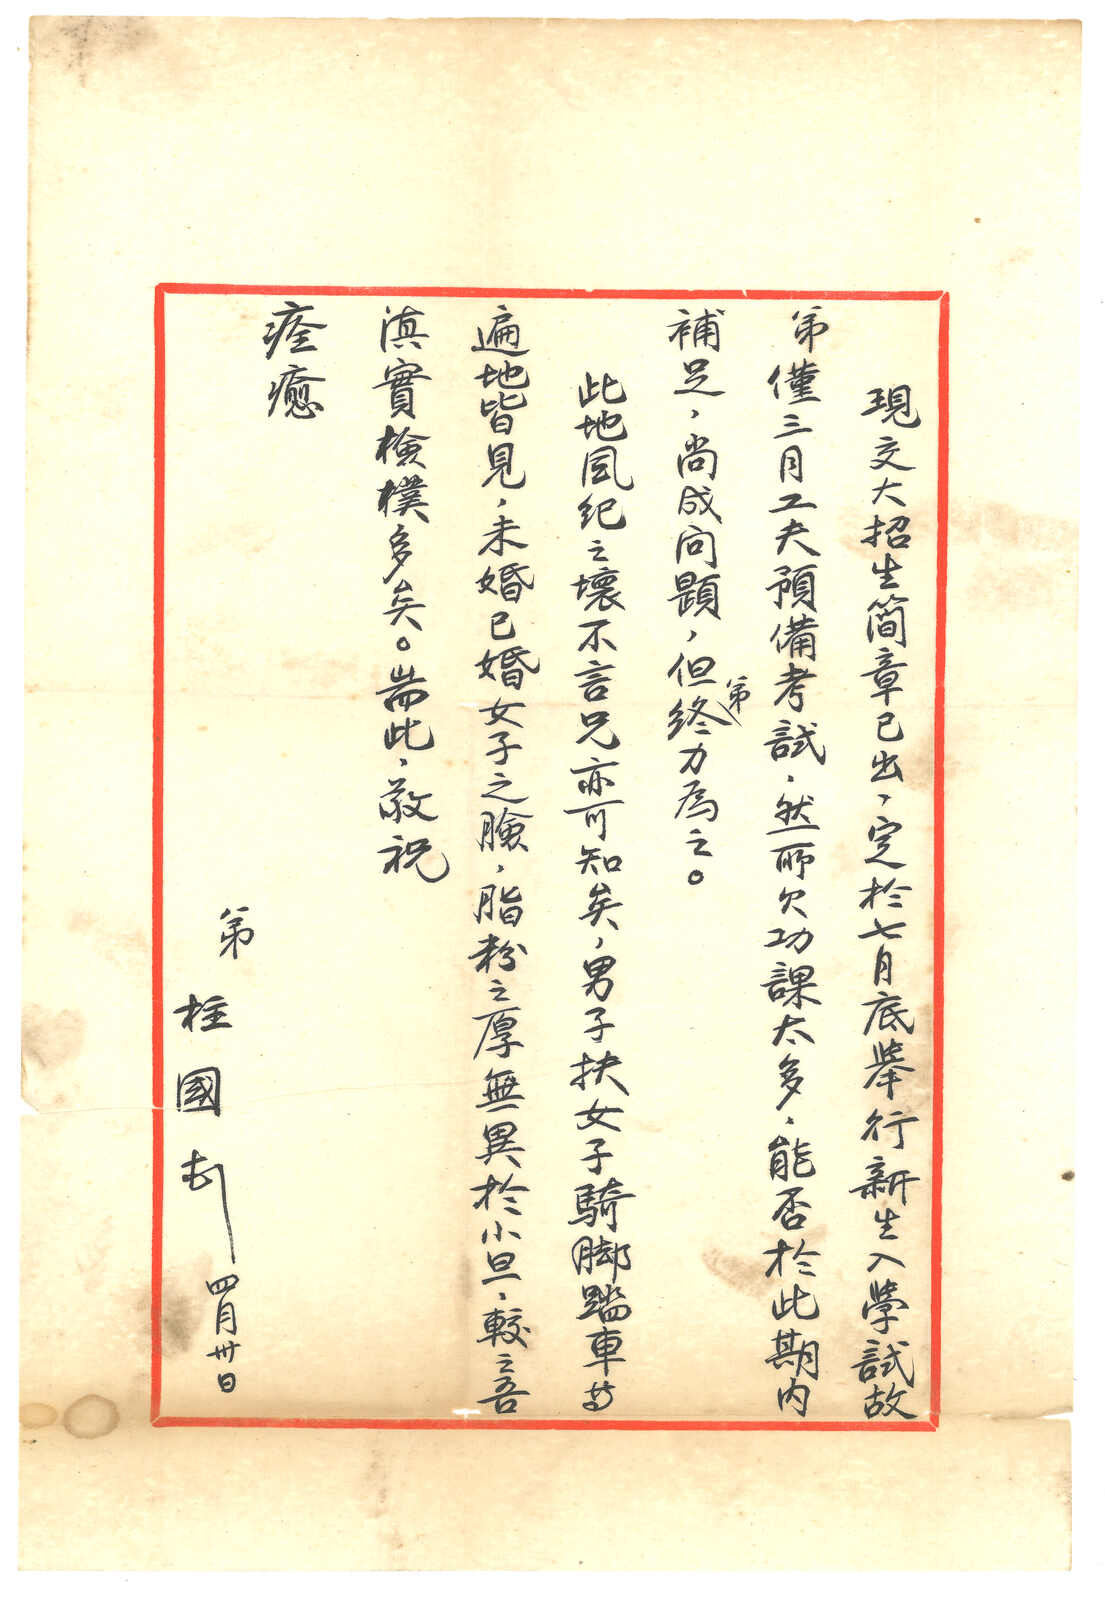 現交大招生簡章已出，定於七月底舉行新生入學試故
弟僅三月工夫預備考試，然所欠功課太多，能否於此期內
補足，尚成问題，但弟終力為之。
此地風紀之壞不言兄亦可知矣，男子扶女子騎脚踏車
遍地皆見，未婚已婚女子之臉，脂粉之厚無異於小旦，較之吾
滇實檢樸多矣。耑此，敬祝
痊癒
弟
柱國
四月卅日